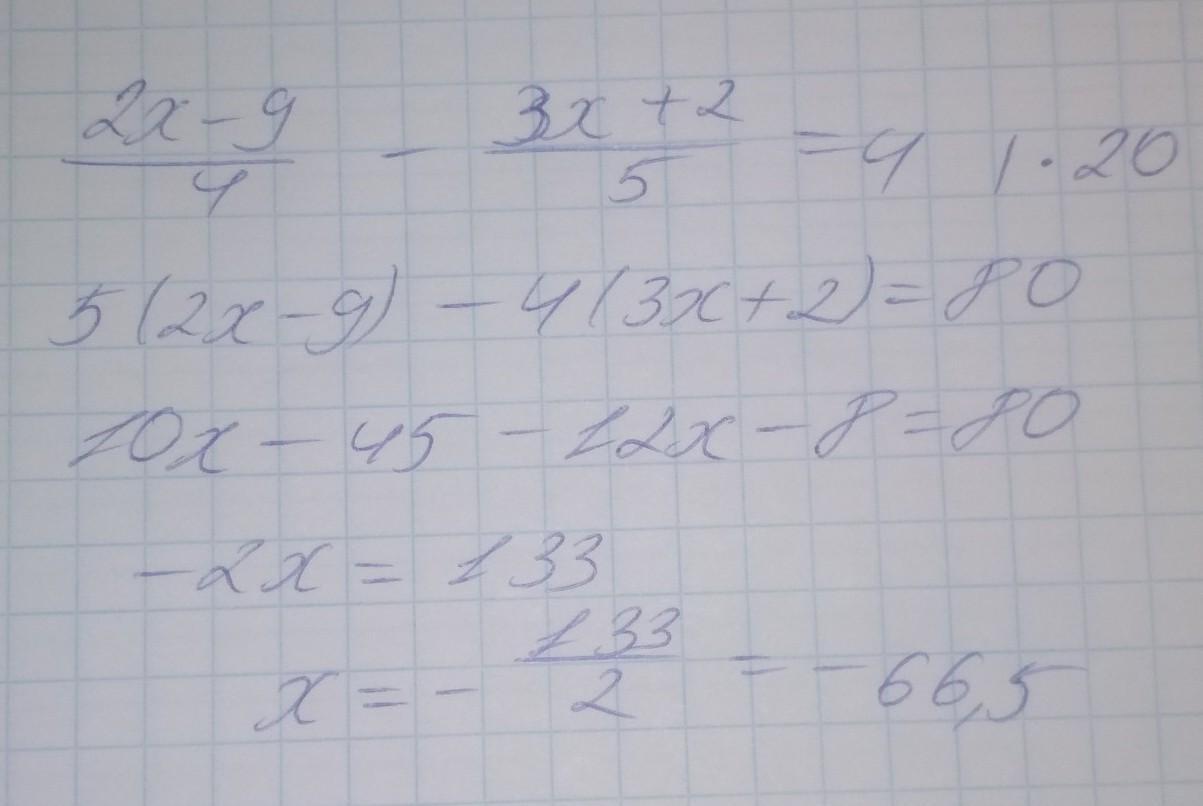 (2x-9)/4 - (3x+2)/5 = 4 | · 20
5(2x-9) - 4(3x+2) = 80
10x - 45 - 12x - 8 = 80
-2x = 133
x = - 133/2 = - 66,5